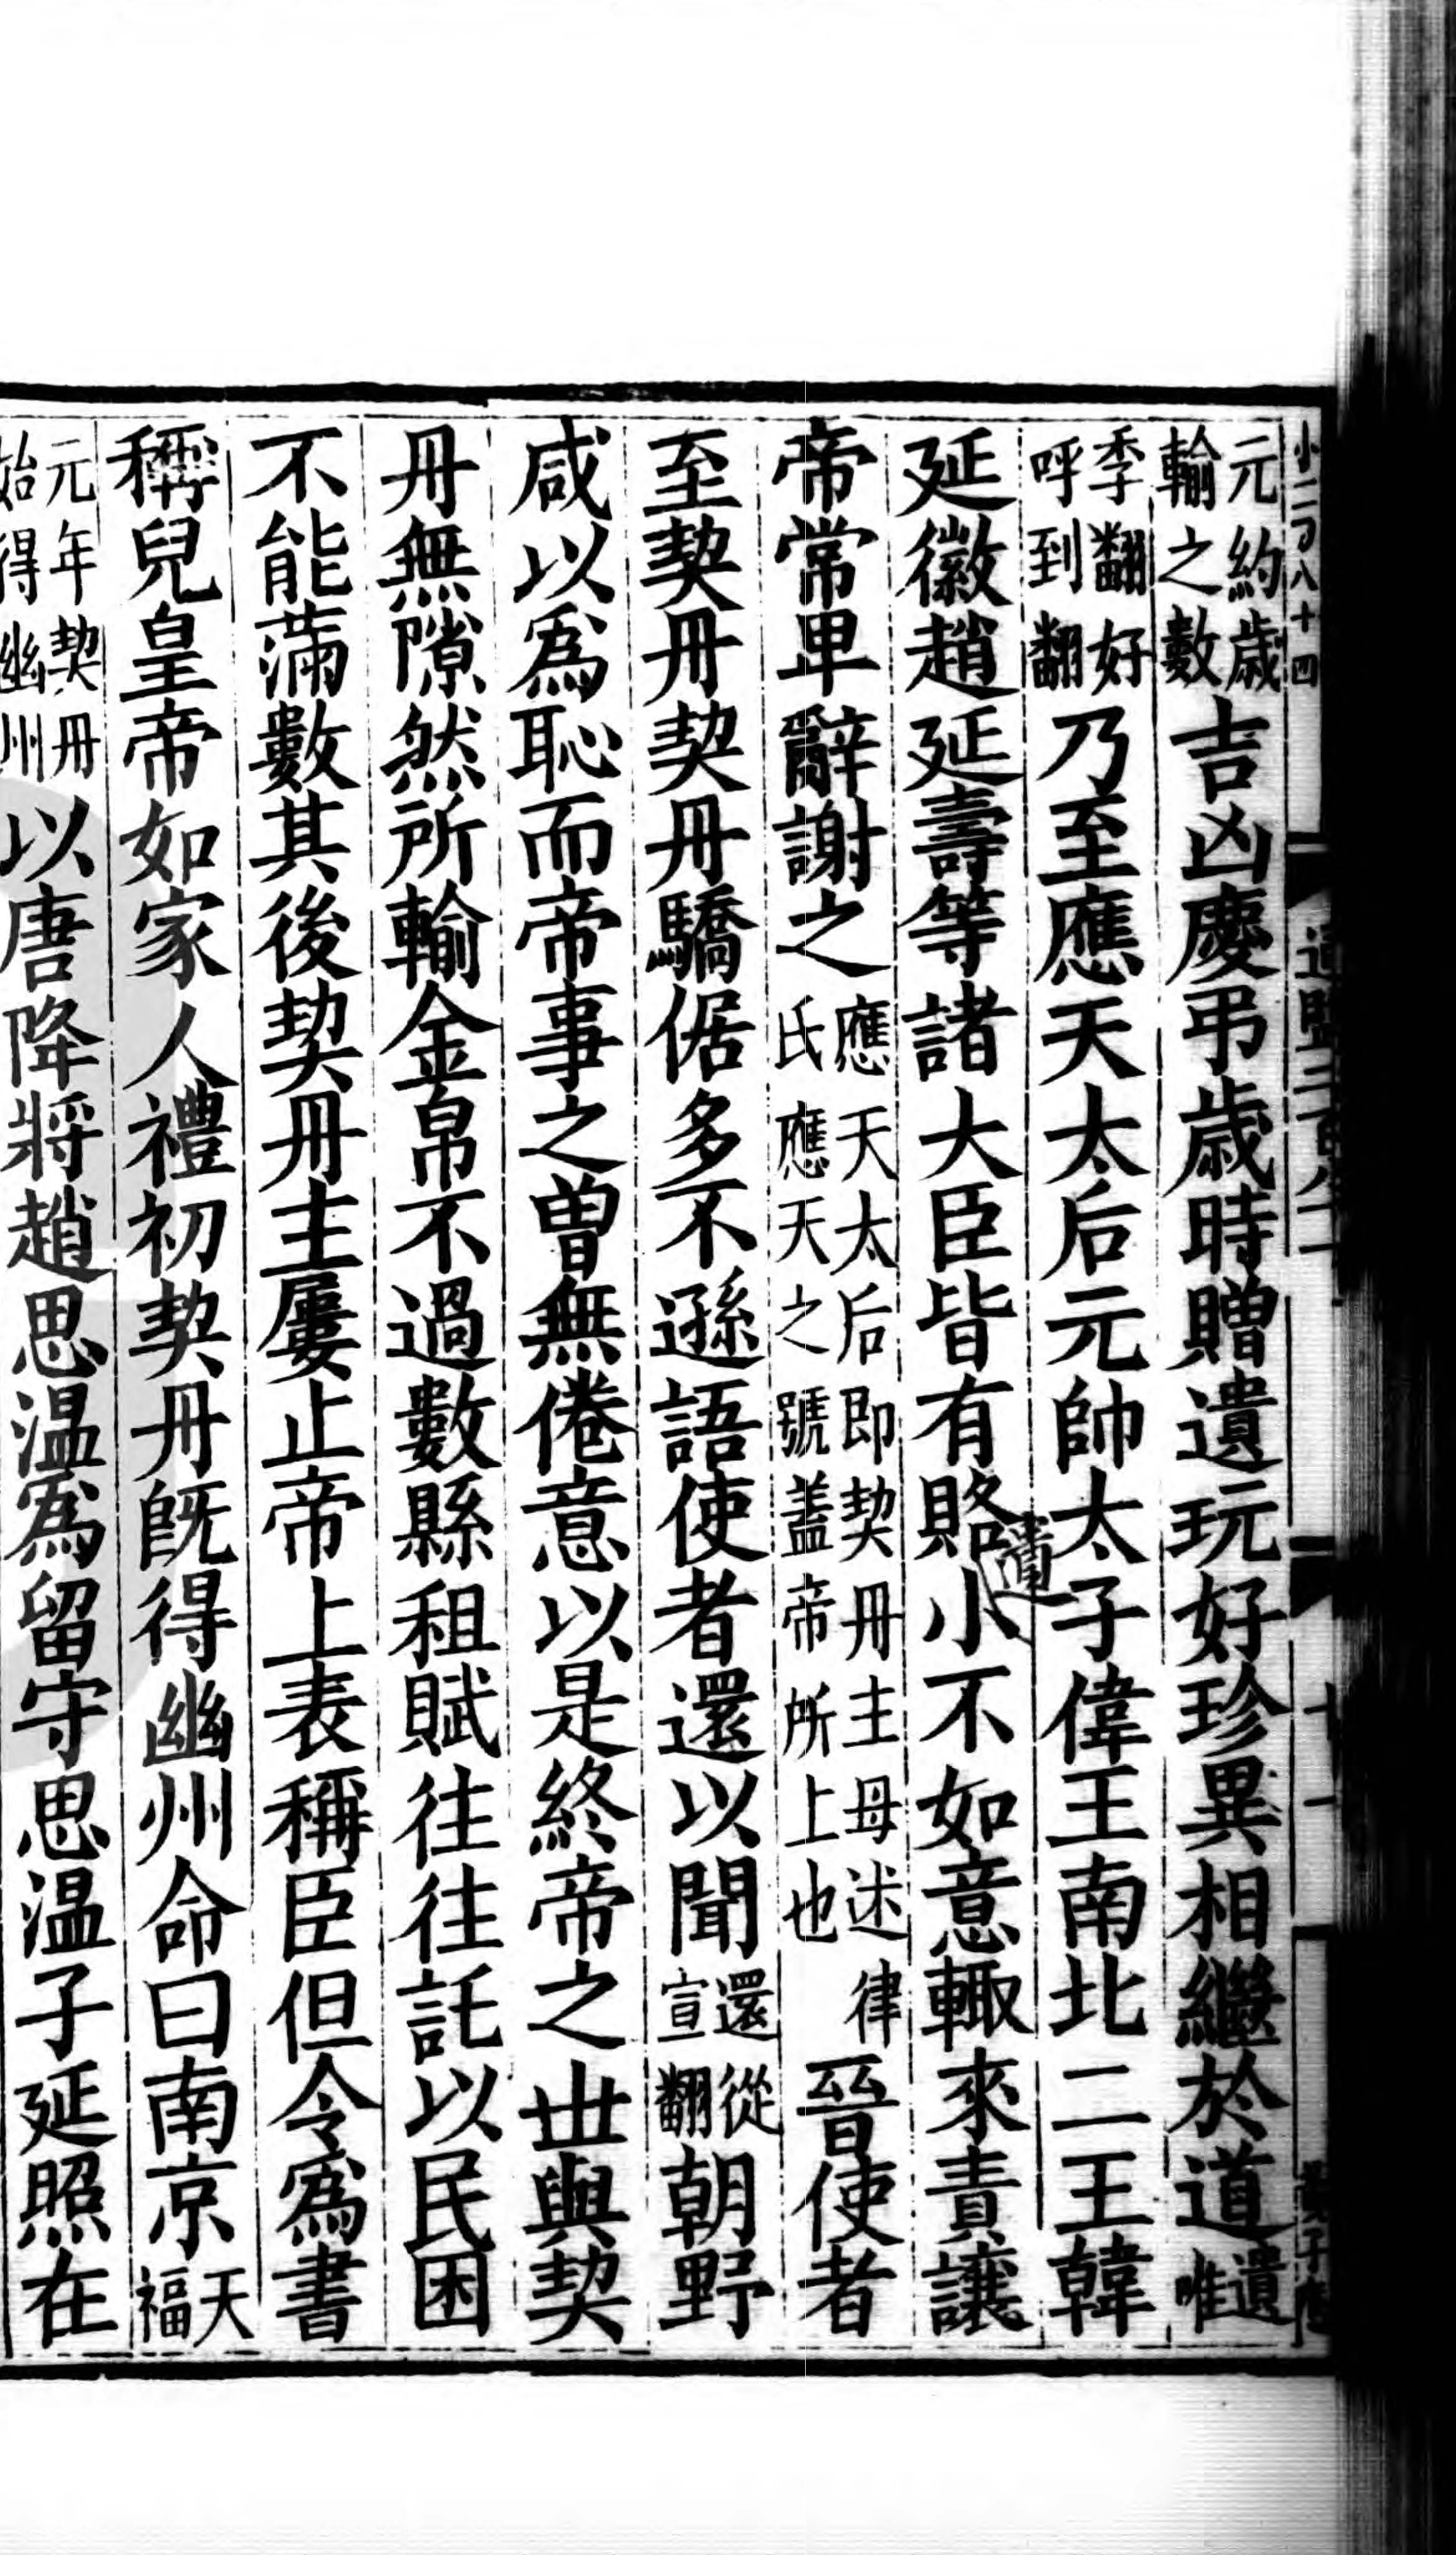 元約歲輸之數吉凶慶弔歲時贈遺玩好珍異相繼於道遺唯
季翻好呼到翻乃至應天太后元帥太子偉王南北二王韓
延徽趙延壽等諸大臣皆有賂遺小不如意輙來責讓
帝常卑辭謝之應天太后即契丹主母述律氏應天之號盖帝所上也晉使者
至契丹契丹驕倨多不遜語使者還以聞還從宣翻朝野
咸以爲恥而帝事之曾無倦意以是終帝之世與契
丹無隙然所輸金帛不過數縣租賦往往託以民困
不能滿數其後契丹主屢止帝上表稱臣但令爲書
稱兒皇帝如家人禮初契丹旣得幽州命曰南京天福
元年契丹始得幽州以唐降將趙思温爲留守思温子延照在